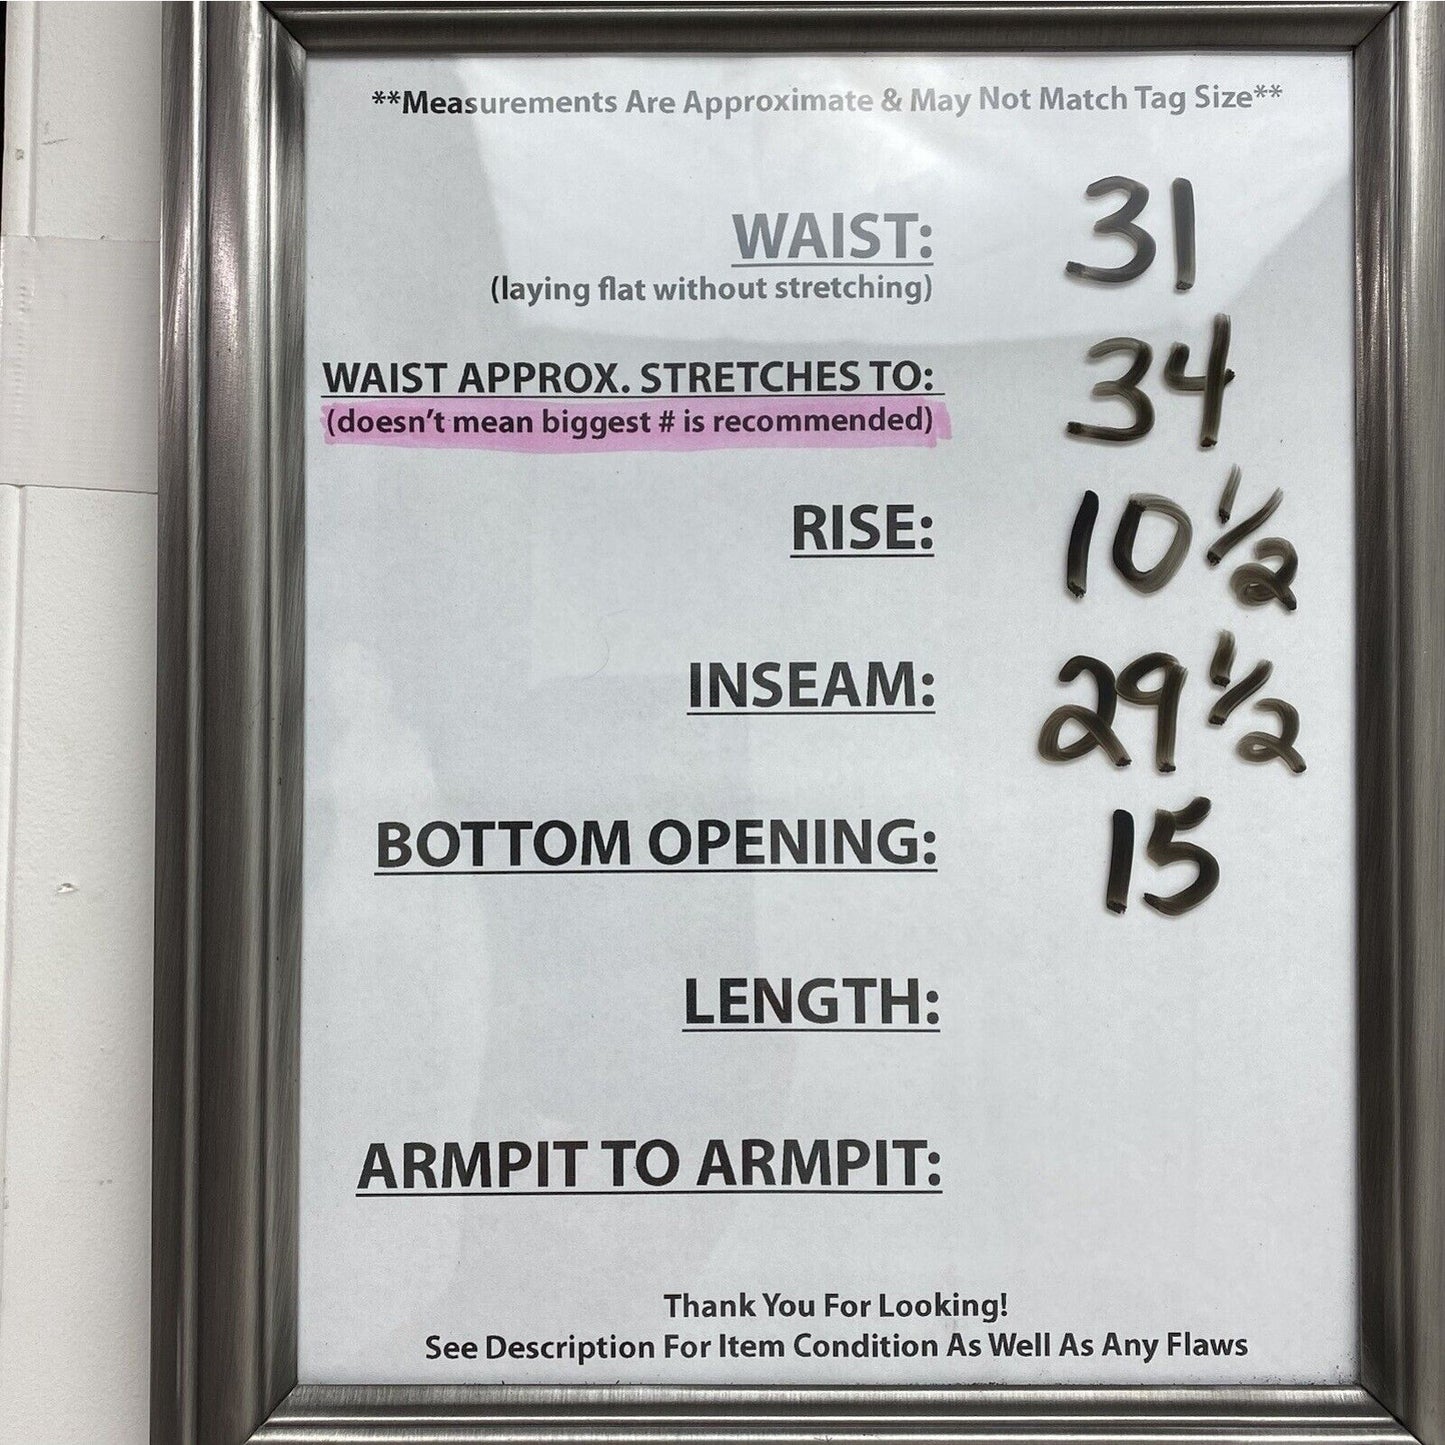 **Measurements Are Approximate & May Not Match Tag Size**
WAIST: 31
(laying flat without stretching)
WAIST APPROX. STRETCHES TO: 34
(doesn't mean biggest # is recommended)
RISE: 10 1/2
INSEAM: 29 1/2
BOTTOM OPENING: 15
LENGTH:
ARMPIT TO ARMPIT:
Thank You For Looking!
See Description For Item Condition As Well As Any Flaws